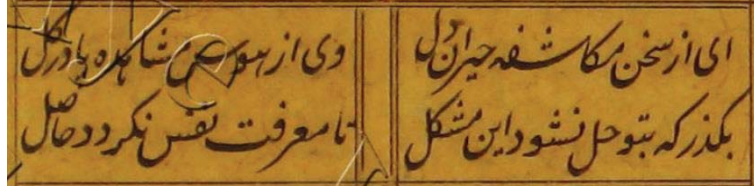 ای از سخن مکاشفه حیران دل
وی از هوس مشاهده پا در گل
بگذر که بتو حل نشود این مشکل
تا معرفت نفس نکردد حاصل